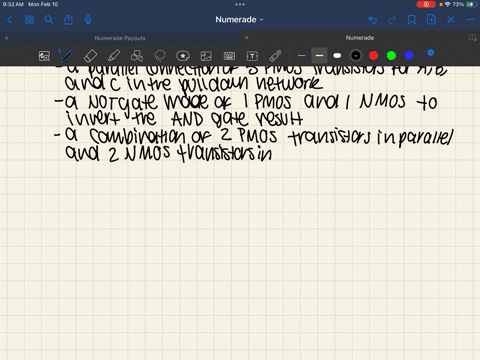 9:32 AM Mon Feb 10
73%
Numerade
Numerade Payouts
Numerade
a parallel connection of 3 PMOS transistors for A, B
and C in the pulldown network
- a NOT gate made of 1 PMOS and 1 NMOS to
invert the AND gate result
- a combination of 2 PMOS transistors in parallel
and 2 NMOS transistors in